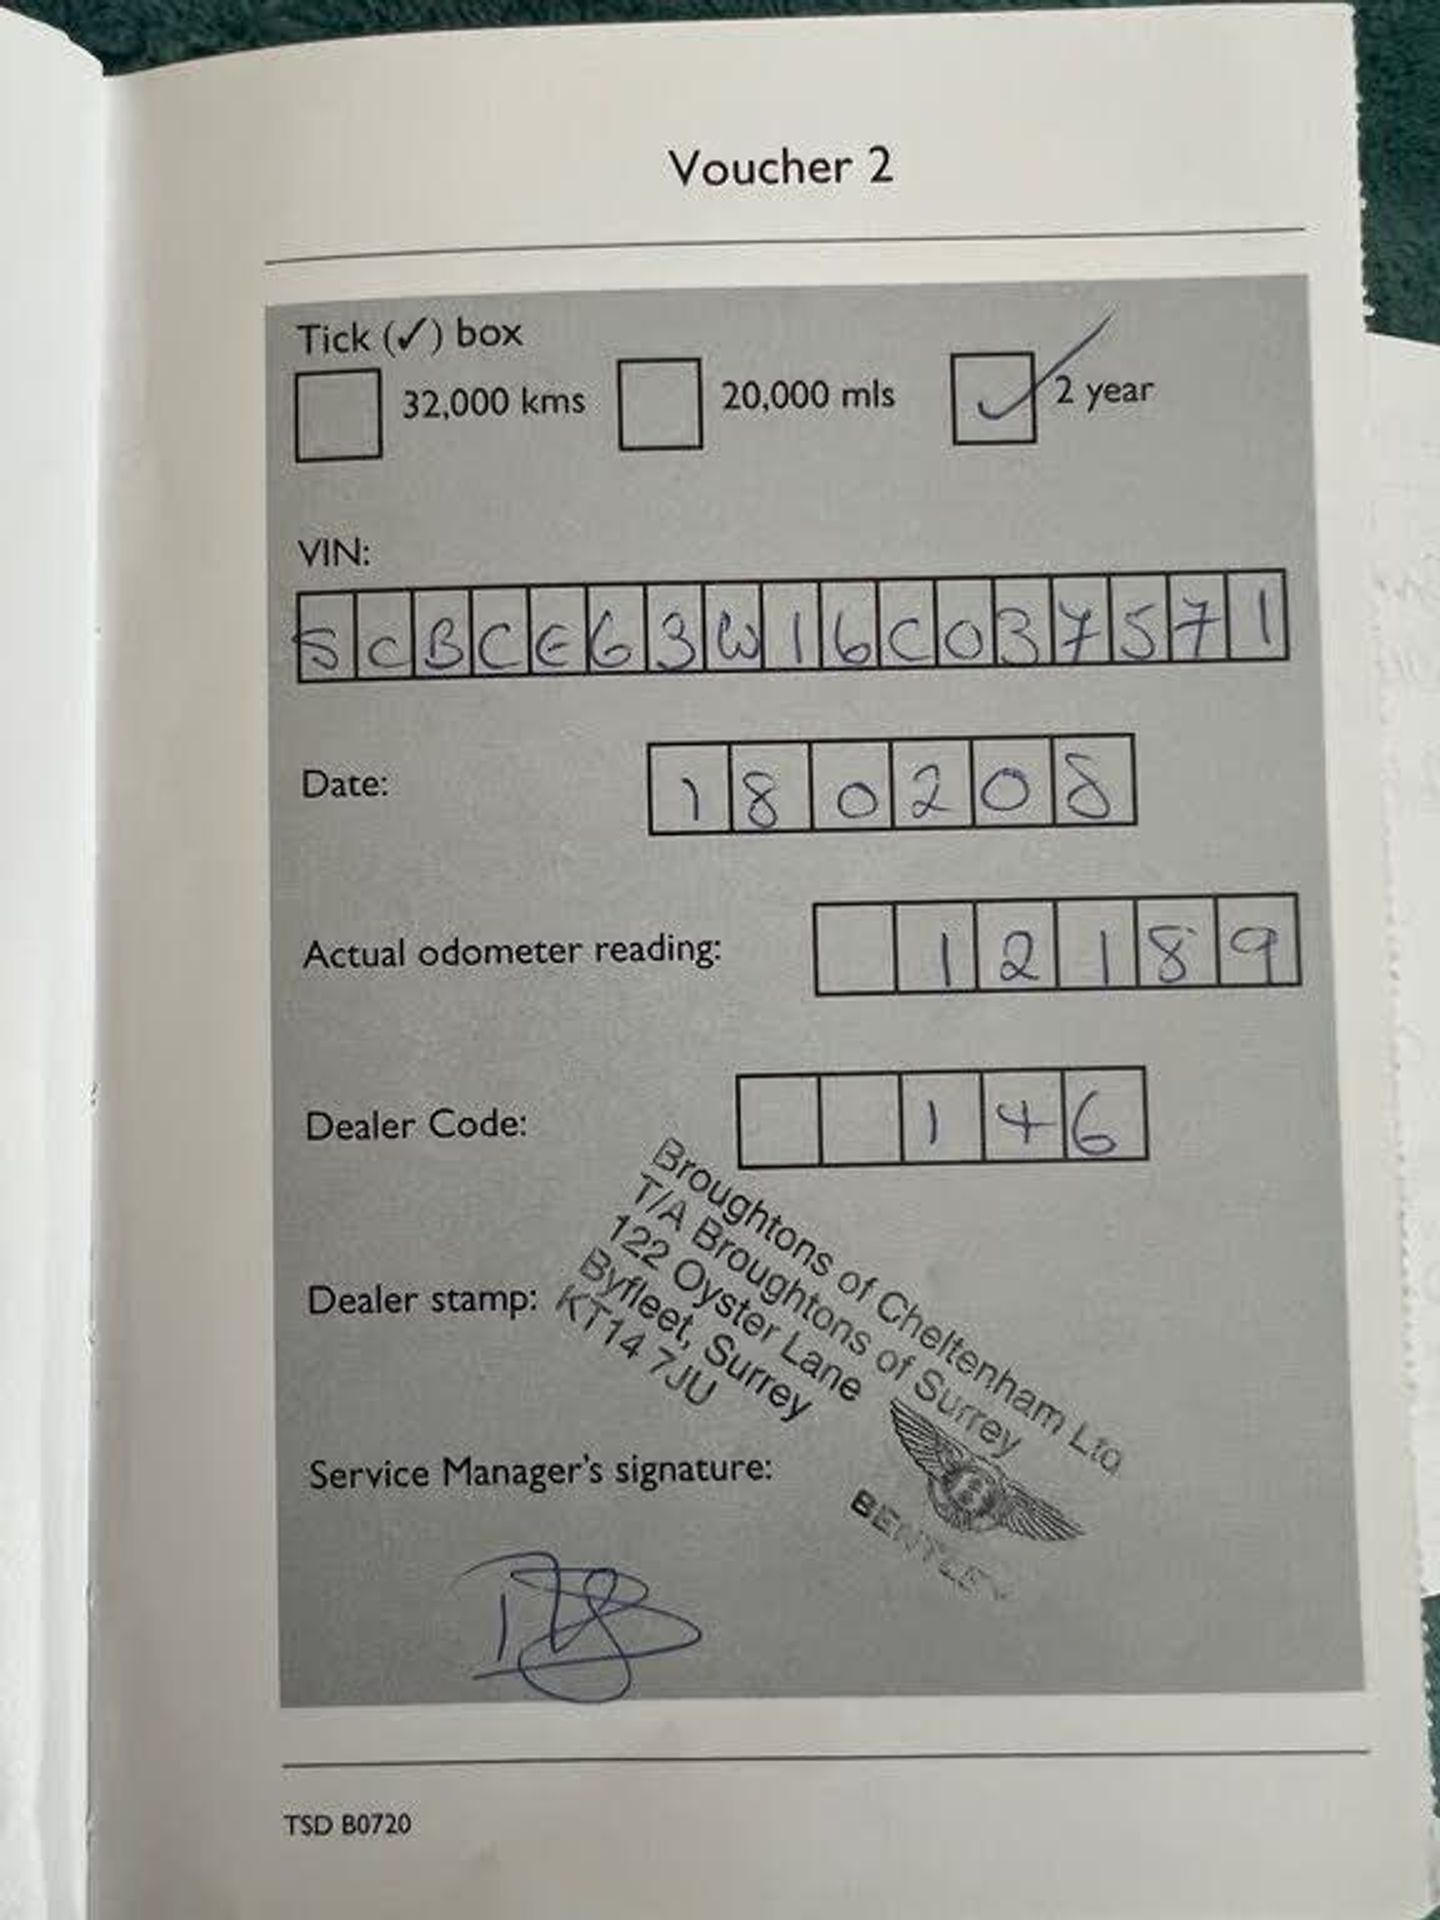 Voucher 2
Tick (✓) box
32,000 kms 20,000 mls ✓ 2 year
VIN:
SCBCE63W16C037571
Date: 180208
Actual odometer reading: 12189
Dealer Code: 146
Dealer stamp:
Broughtons of Cheltenham Ltd
T/A Broughtons of Surrey
122 Oyster Lane
Byfleet, Surrey
KT14 7JU
BENTLEY
Service Manager's signature:
TSD B0720